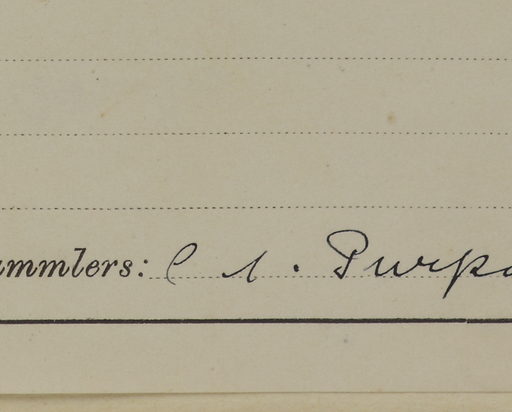 ammlers: C A. Purpu